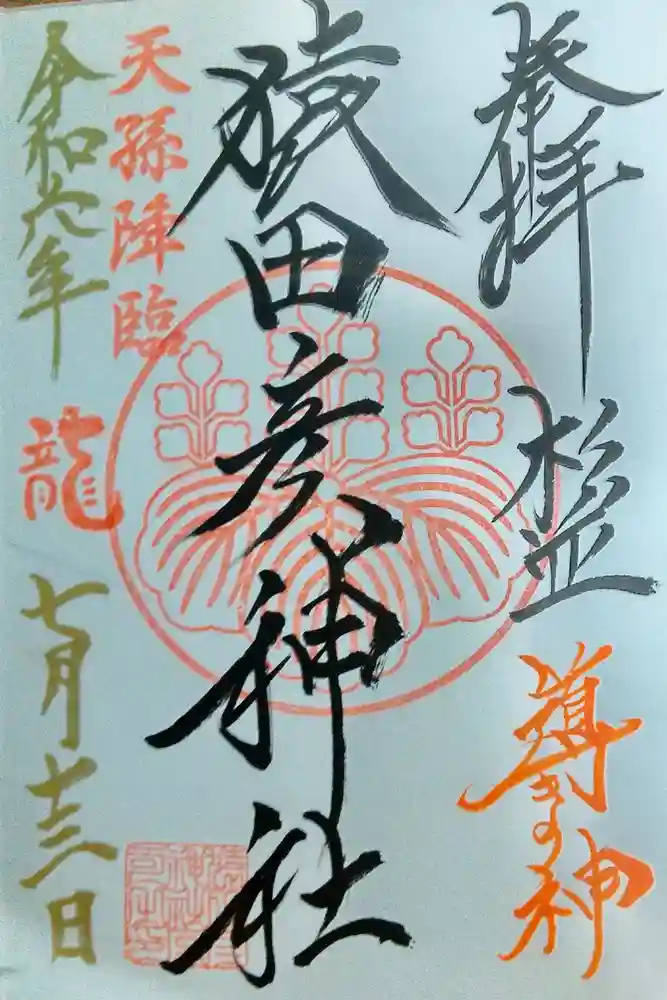 奉拝
導きの神
猿田彦神社
天孫降臨
令和六年
龍
七月十三日